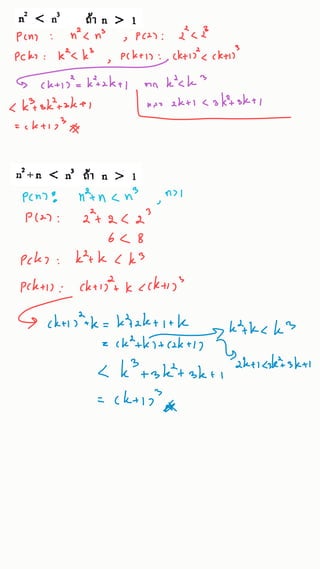 n² < n³ ถ้า n > 1
P(n) : n² < n³ , P(2) : 2² < 2³
P(k) : k² < k³ , P(k+1) : (k+1)² < (k+1)³
(k+1)² = k²+2k+1 จาก k² < k³
< k³+3k²+2k+1 และ 2k+1 < 3k²+3k+1
= (k+1)³
n²+n < n³ ถ้า n > 1
P(n) : n²+n < n³ , n>1
P(2) : 2²+2 < 2³
6 < 8
P(k) : k²+k < k³
P(k+1) : (k+1)²+k < (k+1)³
(k+1)²+k = k²+2k+1+k k²+k < k³
= (k²+k)+(2k+1) 2k+1<3k²+3k+1
< k³+3k²+3k+1
= (k+1)³